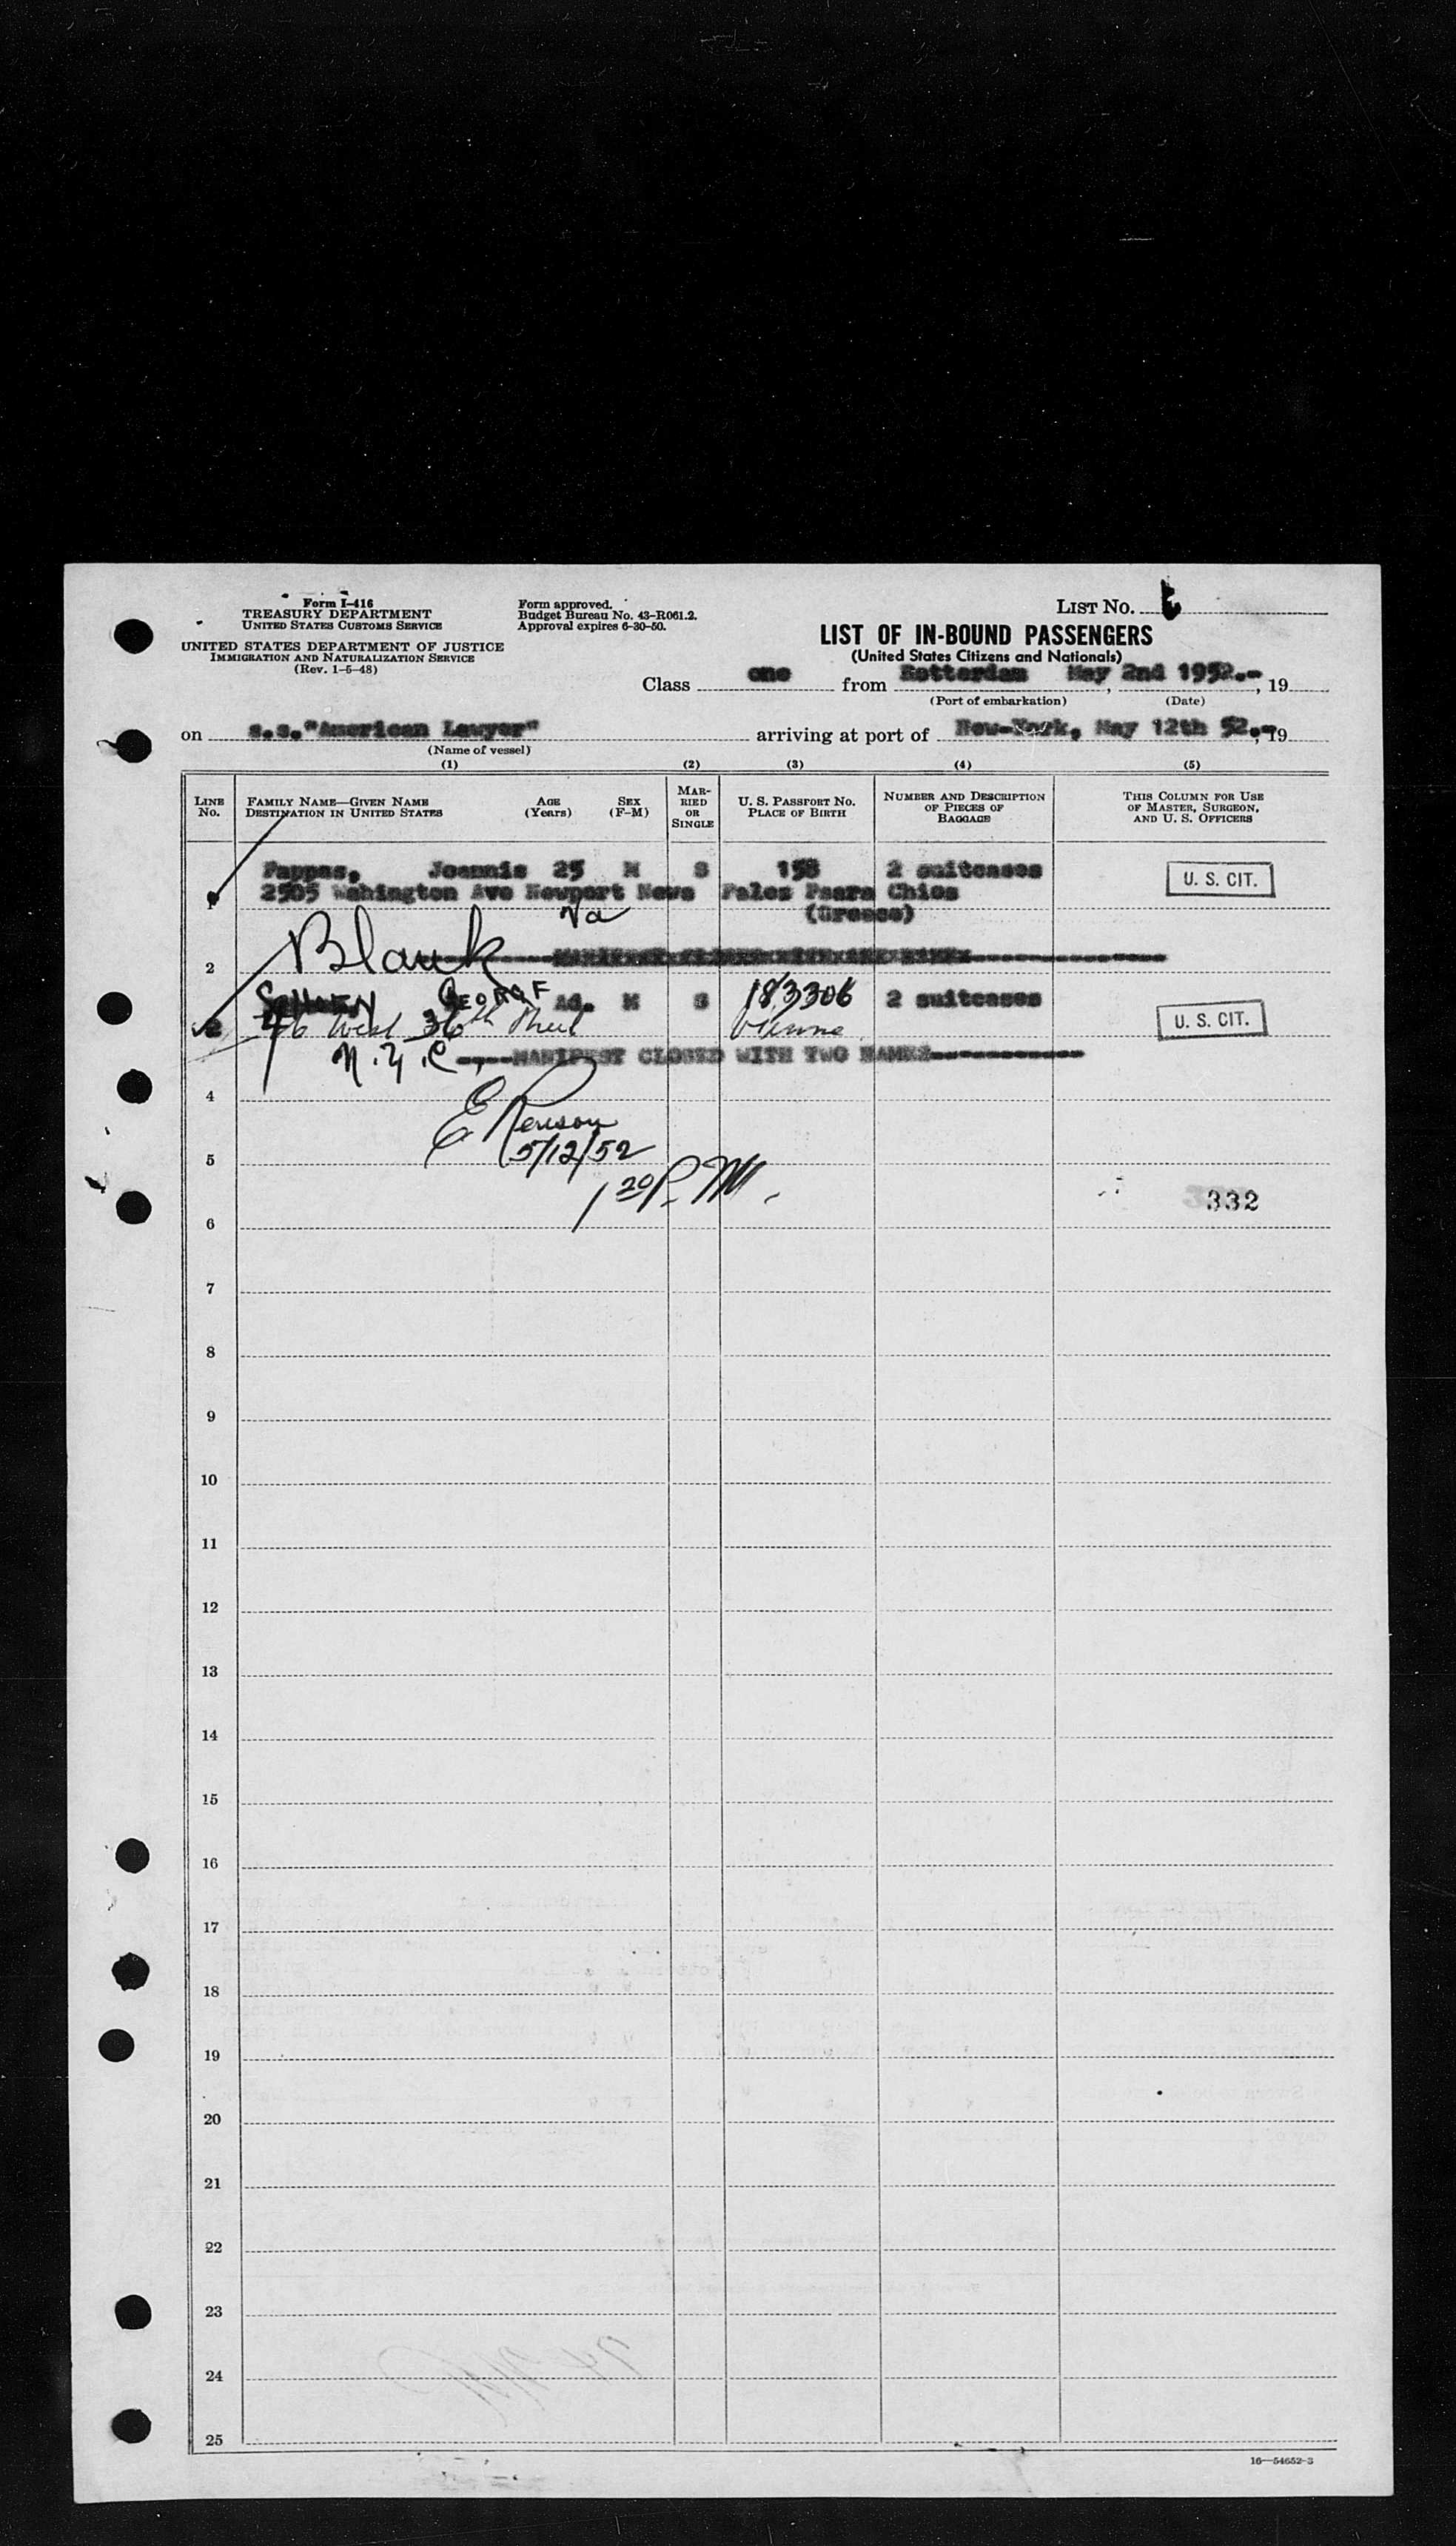 Form I-416
TREASURY DEPARTMENT
UNITED STATES CUSTOMS SERVICE
UNITED STATES DEPARTMENT OF JUSTICE
IMMIGRATION AND NATURALIZATION SERVICE
(Rev. 1-5-48)
Form approved.
Budget Bureau No. 43-R061.2.
Approval expires 6-30-50.
LIST No.
LIST OF IN-BOUND PASSENGERS
(United States Citizens and Nationals)
Class one from Rotterdam May 2nd 1952.-, 19
(Port of embarkation) (Date)
on s.s."American Lawyer" arriving at port of New-York, May 12th 52.-, 19
(Name of vessel)
(1) (2) (3) (4) (5)
LINE No.
FAMILY NAME—GIVEN NAME
DESTINATION IN UNITED STATES
AGE (Years)
SEX (F-M)
MARRIED OR SINGLE
U. S. PASSPORT No.
PLACE OF BIRTH
NUMBER AND DESCRIPTION OF PIECES OF BAGGAGE
THIS COLUMN FOR USE OF MASTER, SURGEON, AND U. S. OFFICERS
1 Pappas, Joannis 25 M S 158 2 suitcases U. S. CIT.
2505 Wahington Ave Newport News Palea Psara Chios
Va (Greece)
2 Blank
GEORGE Ad. M S 183306 2 suitcases U. S. CIT.
West 36th
N.Y.C.
----MANIFEST CLOSED WITH TWO NAMES----
4
5/12/52
5
1 20 P.M.
332
6
7
8
9
10
11
12
13
14
15
16
17
18
19
20
21
22
23
24
25
16—54652-3